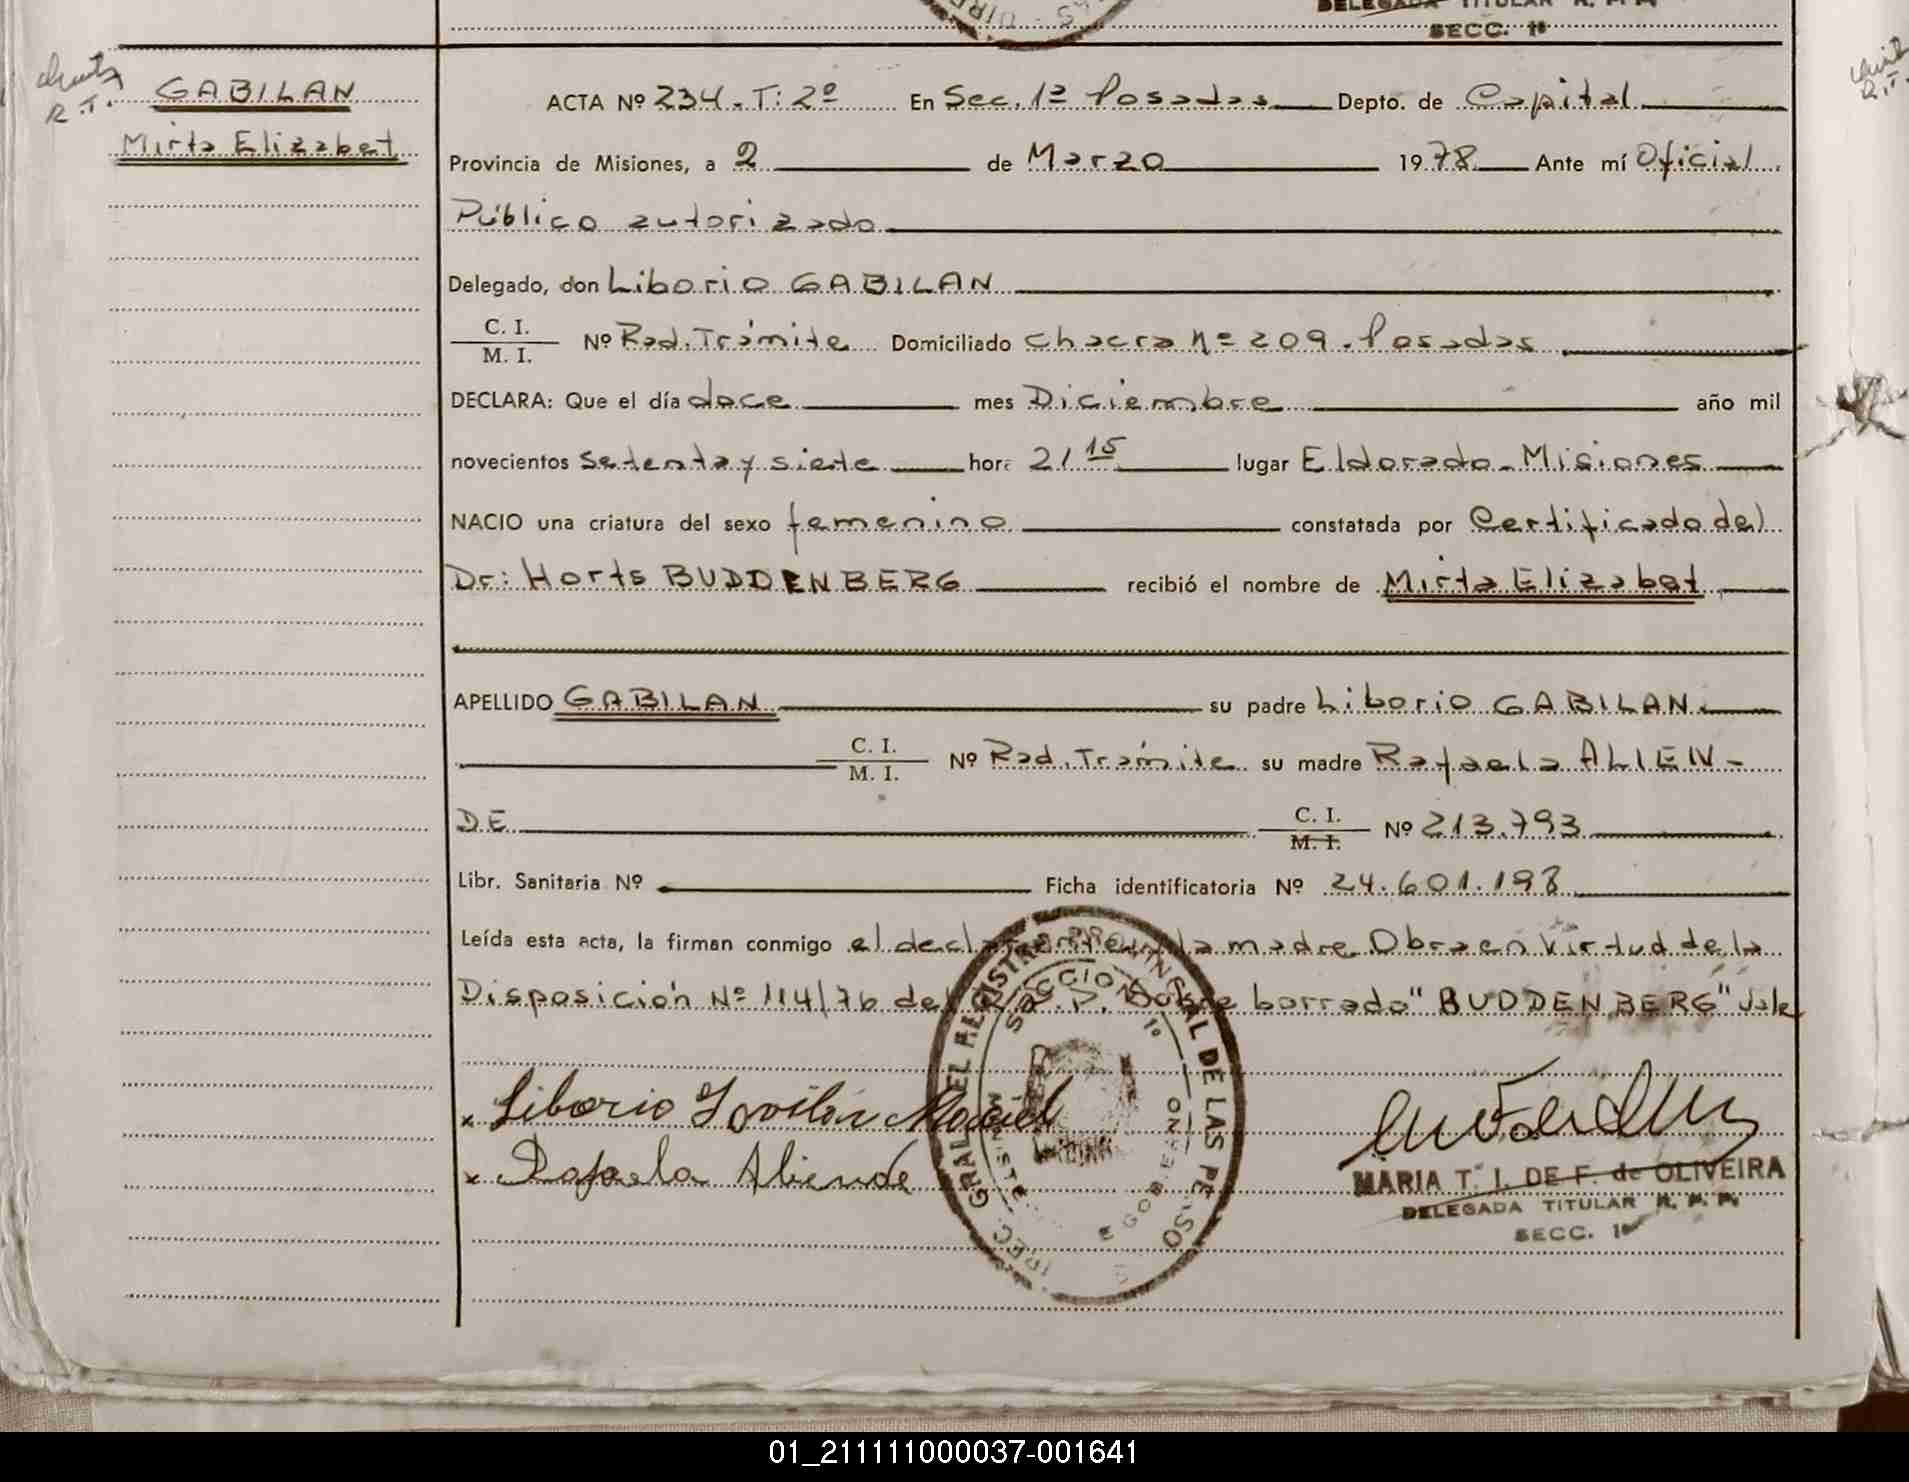 DELEGADA TITULAR R. P. P.
SECC. 1ª
GABILAN
Mirta Elizabet
R.T.
ACTA Nº 234. T: 2º En Sec. 1ª Posadas Depto. de Capital
Provincia de Misiones, a 2 de Marzo 1978 Ante mí Oficial
Público autorizado
Delegado, don Liborio GABILAN
C. I.
M. I. Nº Rad. Trámite Domiciliado Chacra Nº 209. Posadas
DECLARA: Que el día doce mes Diciembre año mil
novecientos setenta y siete hora 21 15 lugar Eldorado - Misiones
NACIO una criatura del sexo femenino constatada por Certificado del
Dr: Horts BUDDENBERG recibió el nombre de Mirta Elizabet
APELLIDO GABILAN su padre Liborio GABILAN
C. I.
M. I. Nº Rad. Trámite su madre Rafaela ALIEN-
DE C. I.
M. I. Nº 213.793
Libr. Sanitaria Nº Ficha identificatoria Nº 24.601.198
Leída esta acta, la firman conmigo el declarante y la madre. Obra en virtud de la
Disposición Nº 114/76 del R. P. P. Sobre borrado "BUDDENBERG" Vale
Liborio Gavilán Maciel
Rafaela Aliende
DIREC. GRAL. DEL REGISTRO PROVINCIAL DE LAS PERSONAS
SECCION 1º
MINISTERIO DE GOBIERNO
MARIA T. I. DE F. de OLIVEIRA
DELEGADA TITULAR R. P. P.
SECC. 1ª
01_211111000037-001641